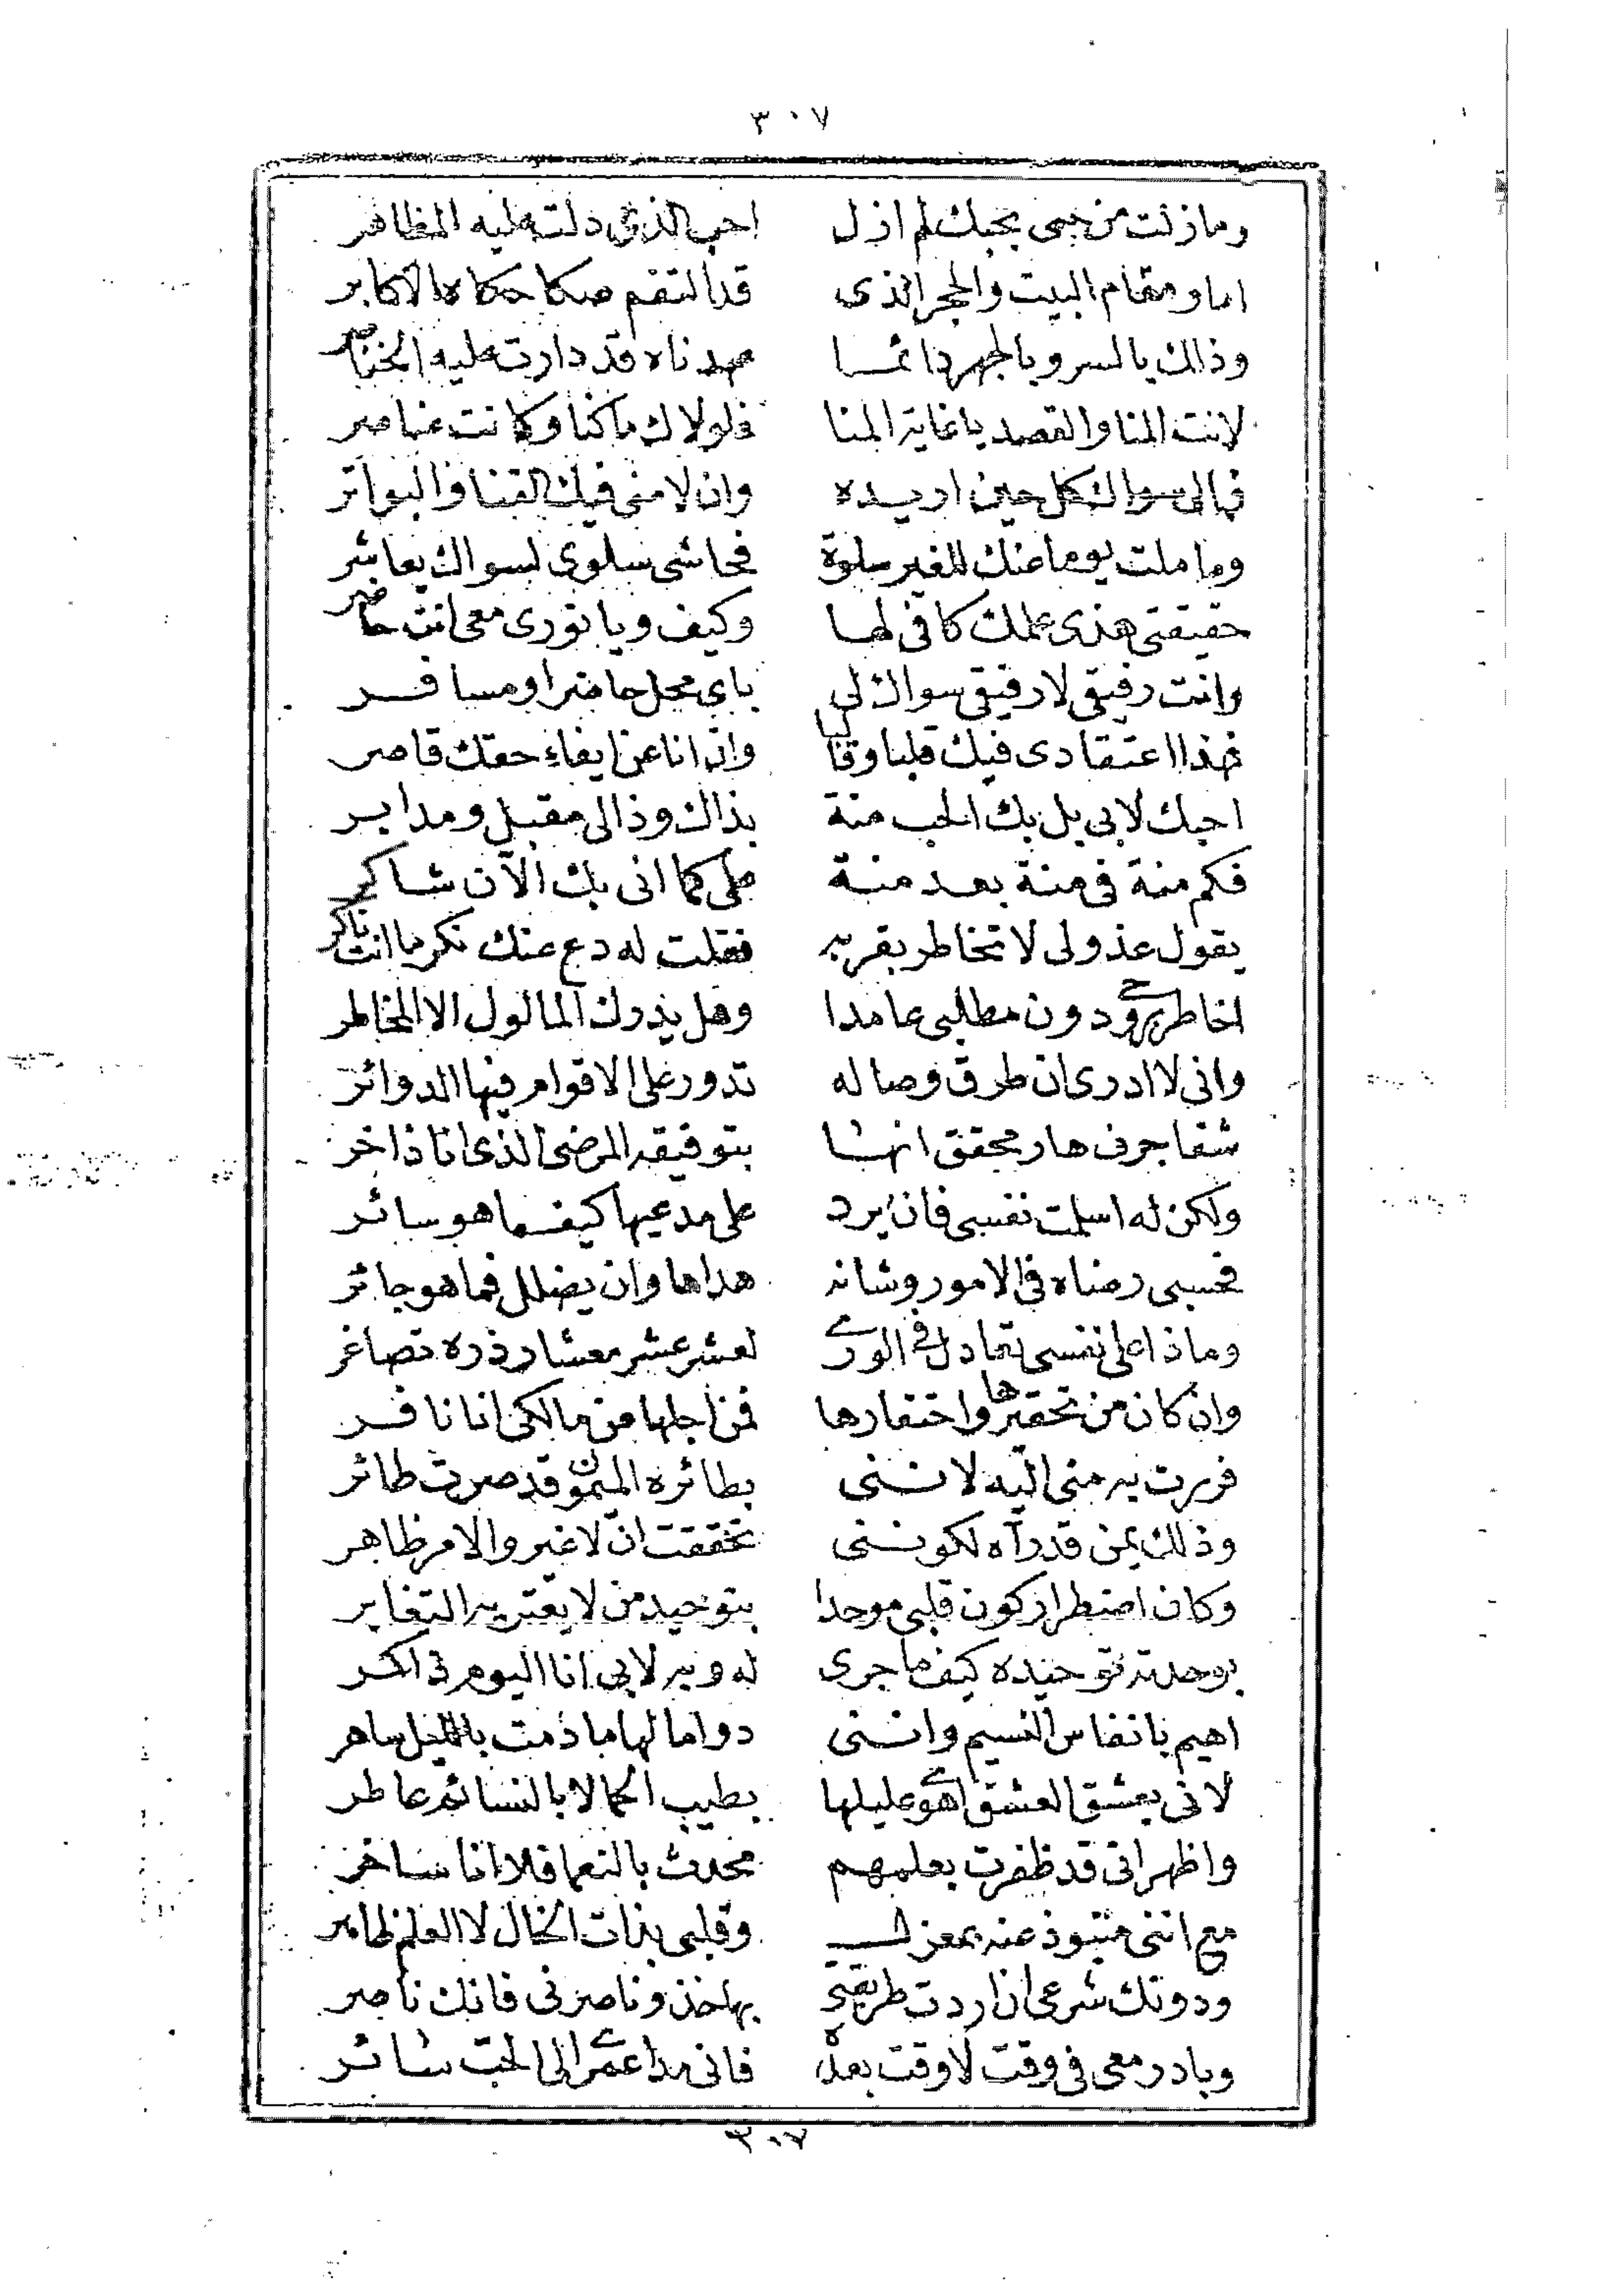 ٣٠٧
وما زلت من حبى بحبك لم ازل احب الذى دلت عليه المظاهر
اما ومقام البيت والحجر الذى قد التقم صكا حكاه الاكابر
وذاك بالسر وبالجهر دائما عهدناه قد دارت عليه الخناصر
لانت المنا والقصد يا غاية المنا فلولاك ما كنا وكانت عناصر
فمالى سواك كل حين اريده وان لامنى فيك القنا والبواتر
وما ملت يوما عنك للغير سلوة فحاشى سلوى لسواك يعاشر
حقيقتى هذى علمك كافى لها وكيف ويا نورى معى انت حاضر
وانت رفيقى لا رفيق سواك لى باى محل حاضرا ومسافر
فهذا اعتقادى فيك قلبا وقالبا وان انا عن ايفاء حقك قاصر
احبك لابى بل بك الحب منة بذاك وذالى مقبل ومدابر
فكم منة فى منة بعد منة على كما انى بك الآن شاكر
يقول عذولى لا تخاطر بقربه فقلت له دع عنك نكر ما انت ناكر
اخاطر بروحى دون مطلبى عامدا وهل يدرك المالول الا المخاطر
وانى لا ادرى ان طرق وصاله تدور على الاقوام فيها الدوائر
شفا جرف هار محقق انها بتوفيقه المرضى الذى انا ذاخر
ولكن له اسلمت نفسى فان يرد على مدعيها كيف ما هو سائر
فحسبى رضاه فى الامور وشانه هداها وان يضلل فما هو جائر
وماذا على نفسى تعادل فى الورى لعشر عشر معشار ذره تصاغر
وان كان من تحقيرها واحتقارها فمن اجلها من مالكى انا نافر
فررت به منى اليه لاننى بطائره الميمون قد صرت طائر
وذلك بمن قد رآه لكوننى تحققت ان لا غير والامر ظاهر
وكان اضطرار كون قلبى موحدا بتوحيد من لا يعتريه التغاير
بوحدته توحيده كيف ما جرى له وبه لابى انا اليوم ذاكر
اهيم بانفاس النسيم واننى دواما لها ما دمت بالليل ساهر
لانى بعشق العشق اهوى عليلها بطيب الحما لا بالنسائم عاطر
واظهر انى قد ظفرت بعلمهم محدث بالنعما فلا انا ساخر
مع اننى منبوذ عنه بمعزل وقلبى بذات الخال لا العلم ظاهر
ودونك شرعى ان اردت طريقتى بها خذ وناصرنى فانك ناصر
وبادر معى فى وقت لا وقت بعده فانى مدا عمرى الى الحب سائر
٣٠٧